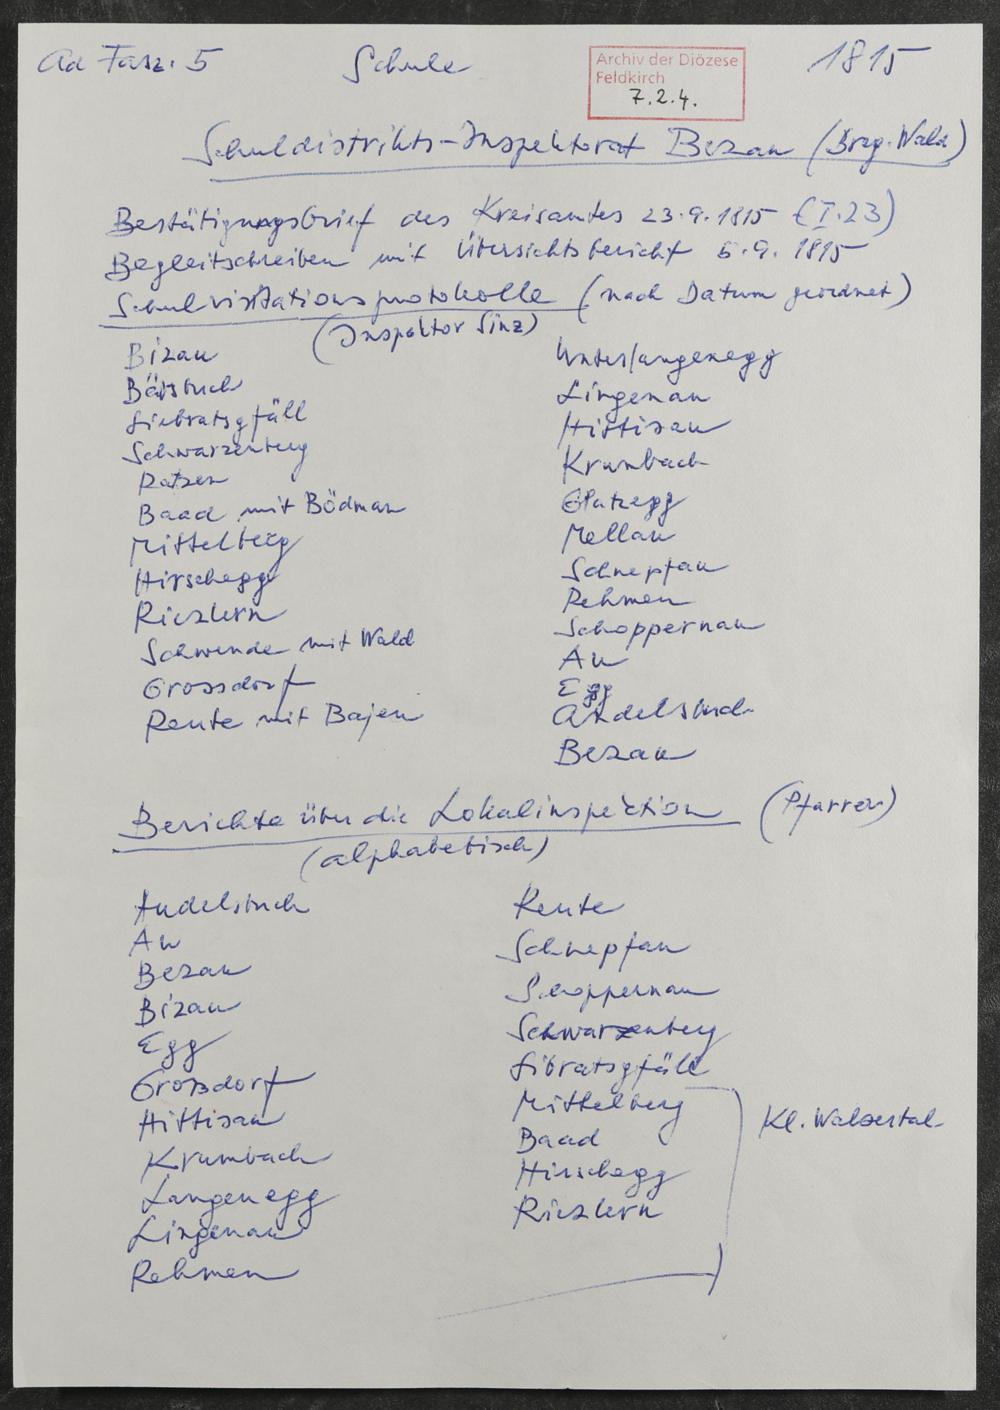 Ad Fasz. 5
Schule
Archiv der Diözese
Feldkirch
7.2.4.
1815
Schuldistrikts-Inspektorat Bezau (Breg. Wald)
Bestätigungsbrief des Kreisamtes 23.9.1815 (I.23)
Begleitschreiben mit Übersichtsbericht 6.9.1815
Schulvisitationsprotokolle (nach Datum geordnet)
(Inspektor Sinz)
Bizau
Bätsbuch
Siebratsgfäll
Schwarzenberg
Ratzen
Baad mit Bödman
Mittelberg
Hirschegg
Riezlern
Schwende mit Wald
Grossdorf
Reute mit Bajen
Unterlangenegg
Lingenau
Hittisau
Krumbach
Glatzegg
Mellau
Schnepfau
Rehmen
Schoppernau
Au
Egg
Andelsbuch
Bezau
Berichte über die Lokalinspektion (Pfarrer)
(alphabetisch)
Andelsbuch
Au
Bezau
Bizau
Egg
Grossdorf
Hittisau
Krumbach
Langenegg
Lingenau
Rehmen
Reute
Schnepfau
Schoppernau
Schwarzenberg
Sibratsgfäll
Mittelberg
Baad
Hirschegg
Riezlern
Kl. Walsertal